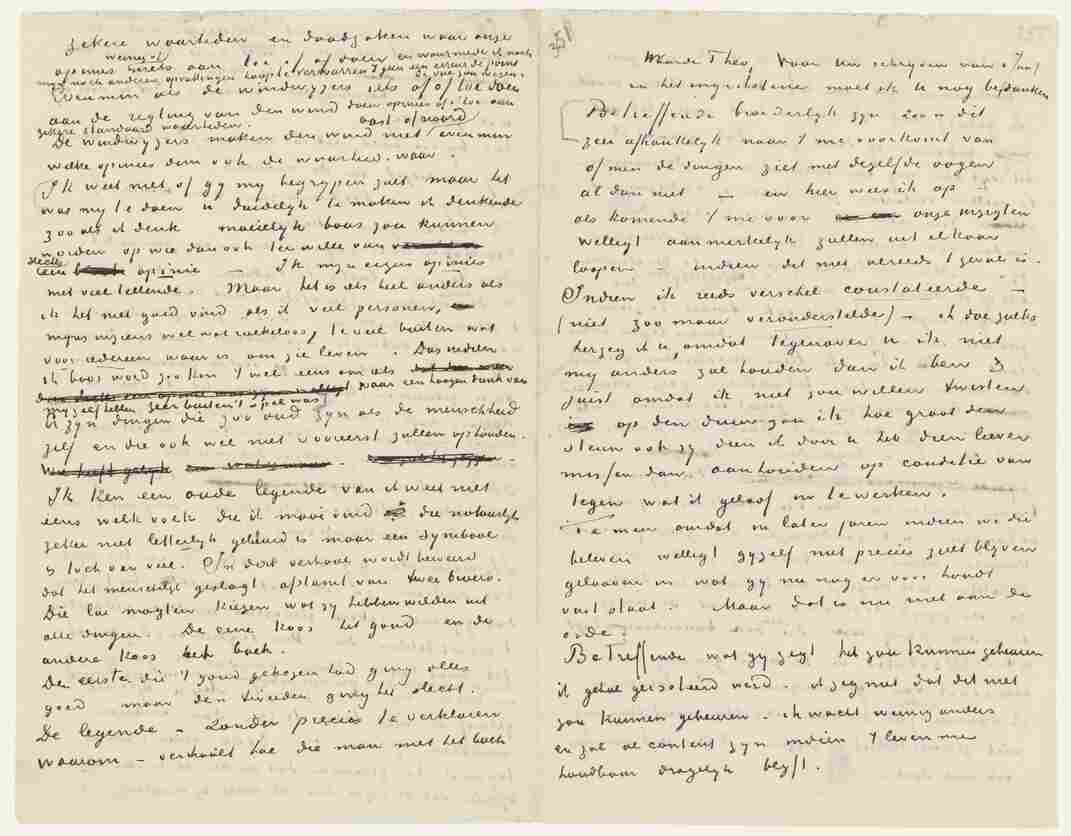 zekere waarheden en daadzaken waar onze
opinies weinig of niets aan toe of af doen en waarmede ik noch
mijn noch anderer opvattingen hoop te verwarren 't geen een erreur de point
de vue zou wezen.
Evenmin als de windwyzers iets af of toe doen
aan de rigting van den wind doen opinies af of toe aan
zekere standaard waarheden.
De windwyzers maken den wind niet oost of noord evenmin
welke opinies dan ook de waarheid waar.
Ik weet niet of gy my begrypen zult maar het
was my te doen u duidelyk te maken ik denkende
zooals ik denk moeielyk boos zou kunnen
worden op wie dan ook ter wille van
slechts een opinie – Ik mijn eigen opinies
niet veel tellende. Maar het is iets heel anders als
ik het niet goed vind als ik veel personen,
mijns inziens wel wat roekeloos, te veel buiten wat
voor iedereen waar is om zie leven. Das redden
ik boos word zoo ken 't wel eens om iets
waar een hoogen dunk van
my zelf hebben zeer buiten 't spel was
Er zyn dingen die zoo oud zyn als de menschheid
zelf en die ook wel niet vooreerst zullen ophouden.
Ik ken een oude legende van ik weet niet
eens welk volk die ik mooi vind die natuurlyk
zeker niet letterlyk gebeurd is maar een symbool
is toch van veel. In dat verhaal wordt beweerd
dat het menschelyk geslagt afstamt van twee broers.
Die lui mogten kiezen wat zy hebben wilden uit
alle dingen. De eene koos het goud en de
andere koos het boek.
Den eersten die 't goud gekozen had ging alles
goed maar den tweeden ging het slecht.
De legende – zonder precies te verklaren
waarom – verhaalt hoe die man met het boek
Waarde Theo, Voor Uw schryven van
en het ingeslotene moet ik U nog bedanken
Betreffende broederlyk zyn zoo is dit
zeer afhankelyk naar 't me voorkomt van
of men de dingen ziet met dezelfde oogen
al dan niet – en hier wees ik op –
als komende 't me voor onze inzigten
welligt aanmerkelyk zullen uit elkaar
loopen – indien dit niet alreeds 't geval is.
Indien ik reeds verschil constateerde –
(niet zoo maar veronderstelde) – ik doe zulks
herzeg ik u, omdat tegenover u ik niet
my anders zal houden dan ik ben &
juist omdat ik niet zou willen twisten
op den duur zou ik hoe groot den
steun ook zy dien ik door u heb dien liever
missen dan aanhouden op conditie van
tegen wat ik geloof in te werken.
Te meer omdat in later jaren indien we die
beleven welligt gyzelf niet precies zult blyven
gelooven in wat gy nu nog er voor houdt
vast staat. Maar dat is nu niet aan de
orde.
Betreffende wat gy zegt het zou kunnen gebeuren
ik geheel geisoleerd werd. ik zeg niet dat dit niet
zou kunnen gebeuren – ik wacht weinig anders
en zal al content zyn indien 't leven me
houdbaar dragelyk blyft.